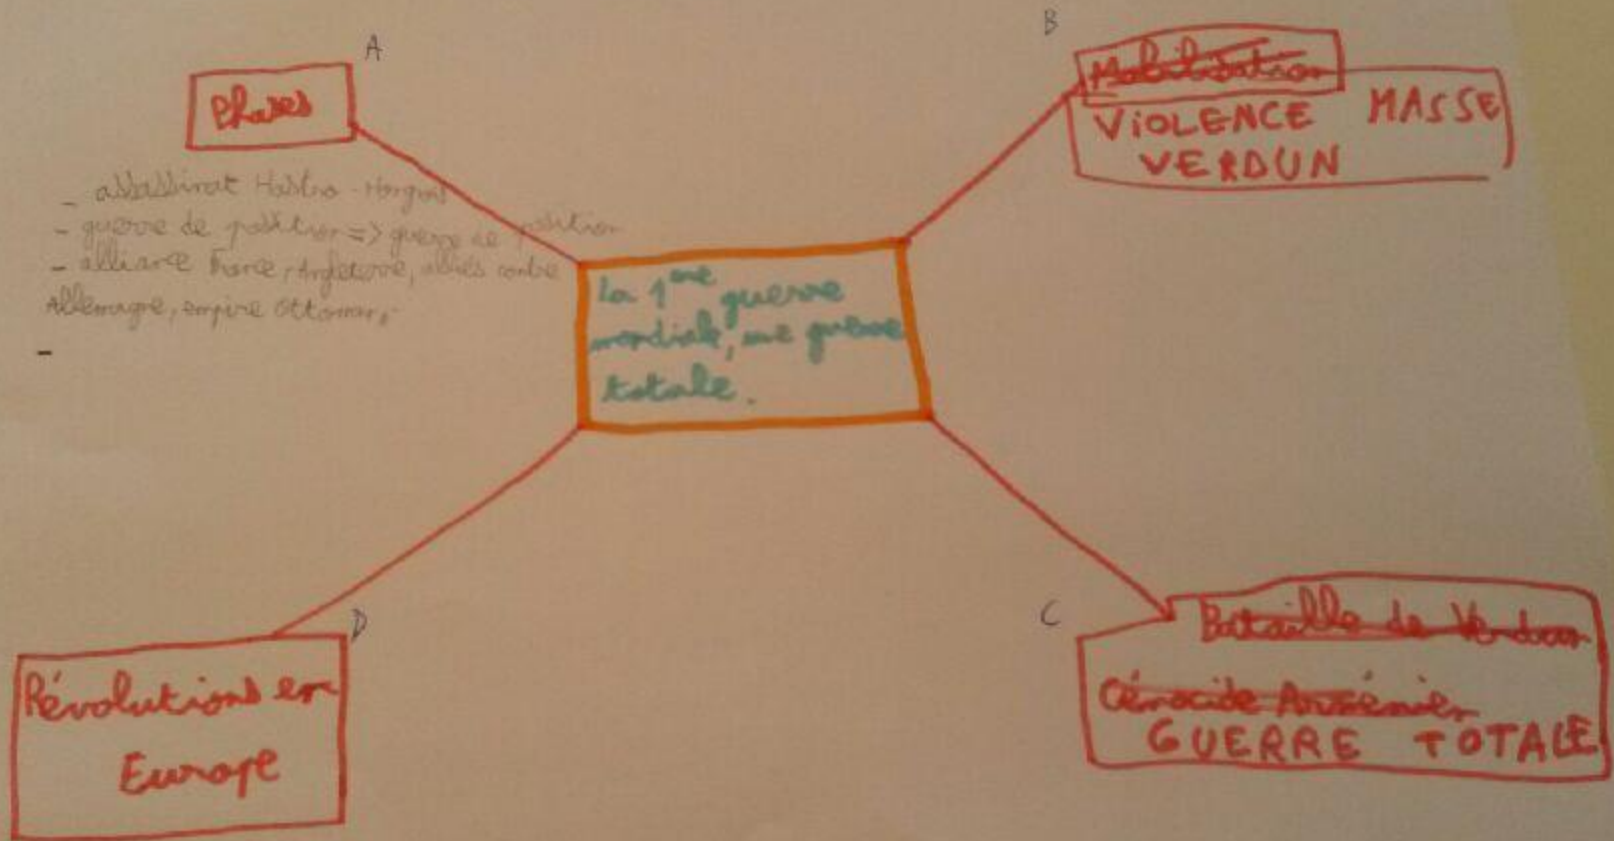 A
Phases
- assassinat Hastro-Hongrois
- guerre de position => guerre de position
- alliance France, Angleterre, alliés contre
Allemagne, empire Ottoman,
-
B
Mobilisation
VIOLENCE MASSE
VERDUN
la 1ère guerre
mondiale, une guerre
totale.
C
Bataille de Verdun
Génocide Arménien
GUERRE TOTALE
D
Révolutions en
Europe